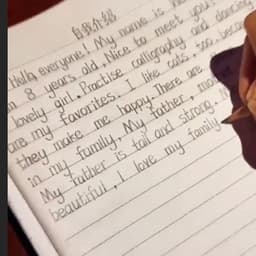 自我介绍
Hello, everyone! My name is
8 years old. Nice to meet you!
lovely girl. Practise calligraphy and dancing
are my favorites. I like cats, too, because
they make me happy. There are
in my family, My father, mo
My father is tall and strong.
beautiful, I love my family